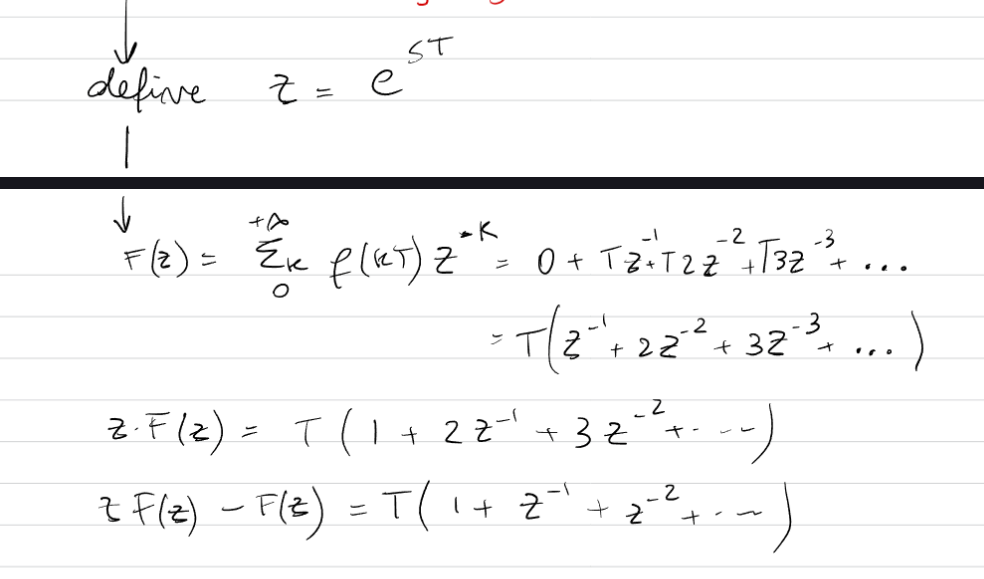 define z = e^{ST}
F(z) = \sum_{0}^{+∞}{}_{K} f(kT) z^{-K} = 0 + Tz^{-1} + T2z^{-2} + T3z^{-3} + ...
= T(z^{-1} + 2z^{-2} + 3z^{-3} + ...)
z·F(z) = T(1 + 2z^{-1} + 3z^{-2} + ...)
zF(z) - F(z) = T(1 + z^{-1} + z^{-2} + ...)